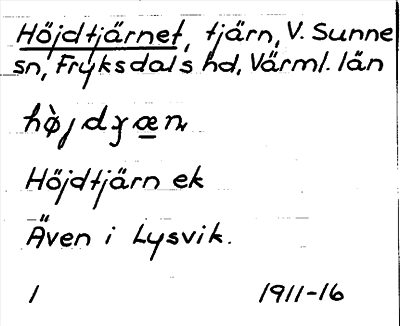 Höjdtjärnet, tjärn, V. Sunne
sn, Fryksdals hd, Värml. län
Höjdtjärn ek
Även i Lysvik.
1 1911-16